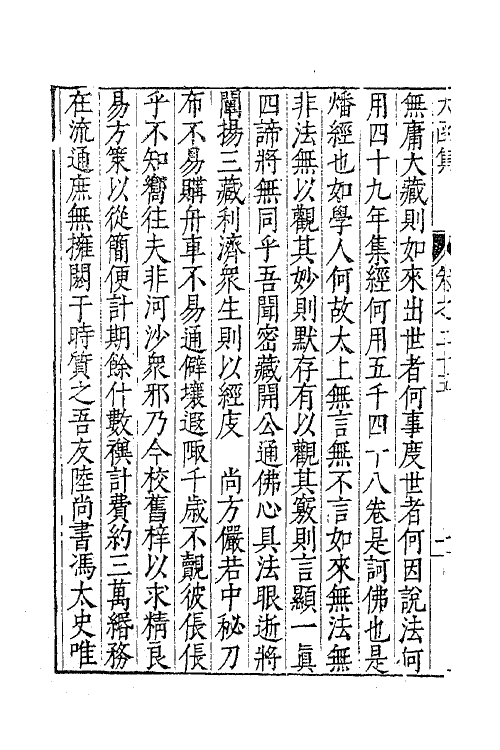 太函集　卷之二十五
無庸大藏則如來出世者何事度世者何因說法何
用四十九年集經何用五千四十八卷是訶佛也是
燔經也如學人何故太上無言無不言如來無法無
非法無以觀其妙則默存有以觀其竅則言顯一眞
四諦將無同乎吾聞密藏開公通佛心具法眼逝將
闡揚三藏利濟衆生則以經庋　尚方儼若中秘刀
布不易購舟車不易通僻壤遐陬千歳不覿彼倀倀
乎不知嚮往夫非河沙衆邪乃今校舊梓以求精良
易方策以從簡便計期餘什數禩計費約三萬緡務
在流通庶無擁閼于時質之吾友陸尚書馮太史唯